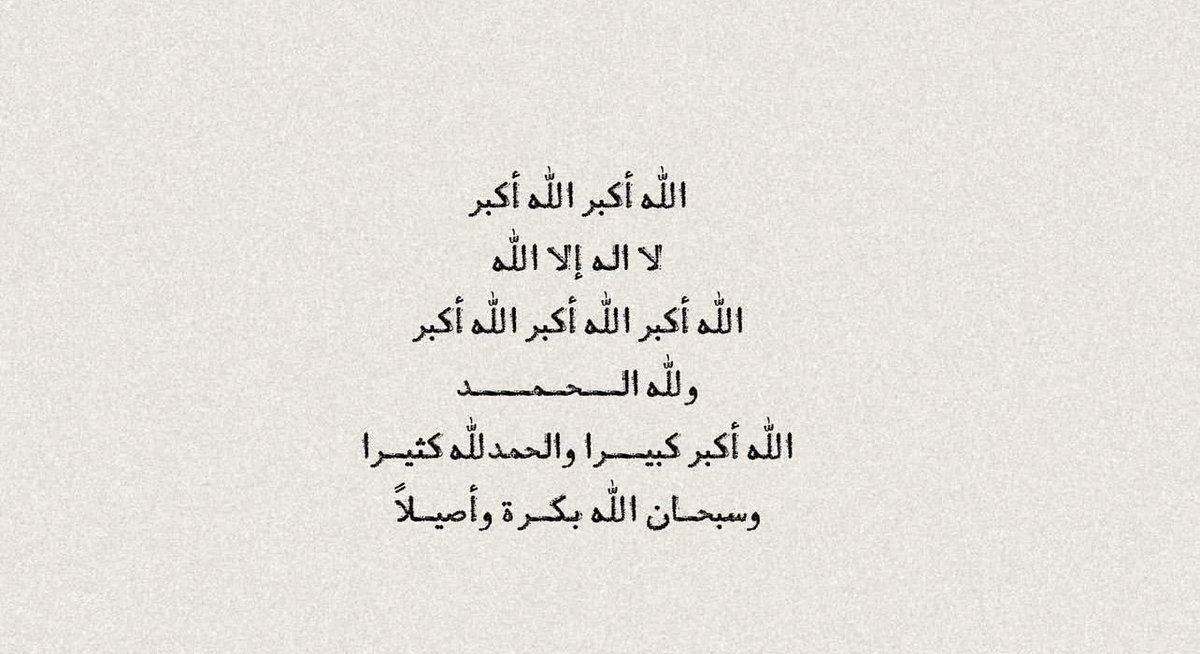 الله أكبر الله أكبر
لا اله إلا الله
الله أكبر الله أكبر الله أكبر
ولله الـــحـمــــد
الله أكبر كبيـــرا والحمدلله كثيـرا
وسبحـان الله بكـرة وأصيـلاً